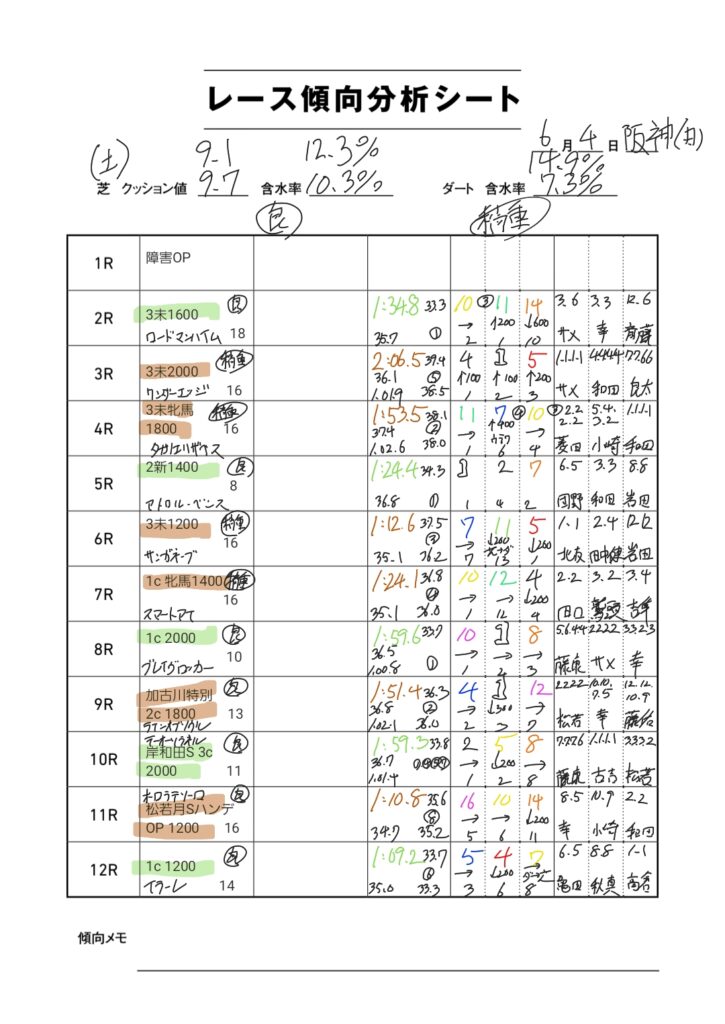 レース傾向分析シート
(土) 9.1 12.3% 6月4日 阪神(日)
14.9%
芝 クッション値 9.7 含水率 10.3% ダート 含水率 7.3%
良 稍重
1R 障害OP
2R 3未1600 良 1:34.8 33.3 10 ③ 11 14 3.6 3.3 12.6
ロードマンハイム 18 35.7 ① → 2 ↑200 1 ↓600 10 サメ 幸 斎藤
3R 3未2000 稍重 2:06.5 39.4 4 1 5 1.1.1.1 4.4.4.4 7.7.6.6
ワンダーエッジ 16 36.1 ⑤ ↑100 ↑100 ↑200 サメ 和田
1.01.9 38.5 1 2 3
4R 3未牝馬 1800 稍重 16 1:53.5 38.1 11 7 ④ 10 ③ 2.2 2.2 5.4. 3.2 1.1.1.1
タカノエリザベス 37.4 ② → ↑400 → 菱田 小崎 和田
1.02.6 38.0 1 6 4
5R 2新1400 良 8 1:24.4 34.3 1 2 7 6.5 3.3 8.8
36.8 ① 1 4 2 団野 和田 岩田
6R 3未1200 稍重 16 1:12.6 37.5 7 11 5 1.1 2.4 12.12
サンガネーブ 35.1 36.2 → 7 ↓200 13 ↓200 1 北友 田中健 岩田
7R 1c 牝馬1400 稍重 16 1:24.1 36.8 10 12 4 2.2 3.2 3.4
スマートアイ 35.1 36.0 → 1 → 12 ↓200 4 田口
8R 1c 2000 良 10 1:59.6 33.7 10 1 8 5.6.4.4 2.2.2.2 3.3.2.3
ブレイヴロッカー 36.5 → → → 藤束 サメ 幸
1.00.8 ① 1 2 3
9R 加古川特別 2c 1800 良 13 1:51.4 36.3 4 1 12 2.2.2.2 10.10. 7.5 12.12. 10.9
36.8 ② → ↓300 → 松若 幸
1.02.1 36.0 2 3 7
10R テーオーソラネル
岸和田S 3c 2000 良 11 1:59.3 33.8 2 5 8 7.7.7.6 1.1.1.1 3.3.3.2
36.7 → ↓200 → 松若
1.01.4 1 2 8
11R オーロラテソーロ
松若月Sハンデ OP 1200 16 1:10.8 35.6 16 10 14 8.5 10.9 2.2
34.7 ⑧ 35.2 → 5 → 6 ↓200 11 幸 小崎 和田
12R 1c 1200 良 14 1:09.2 33.7 5 4 7 6.5 8.8 1-1
イラーレ 35.0 ⑥ 33.3 → 3 ↓200 6 8 亀田 秋真 高倉
傾向メモ